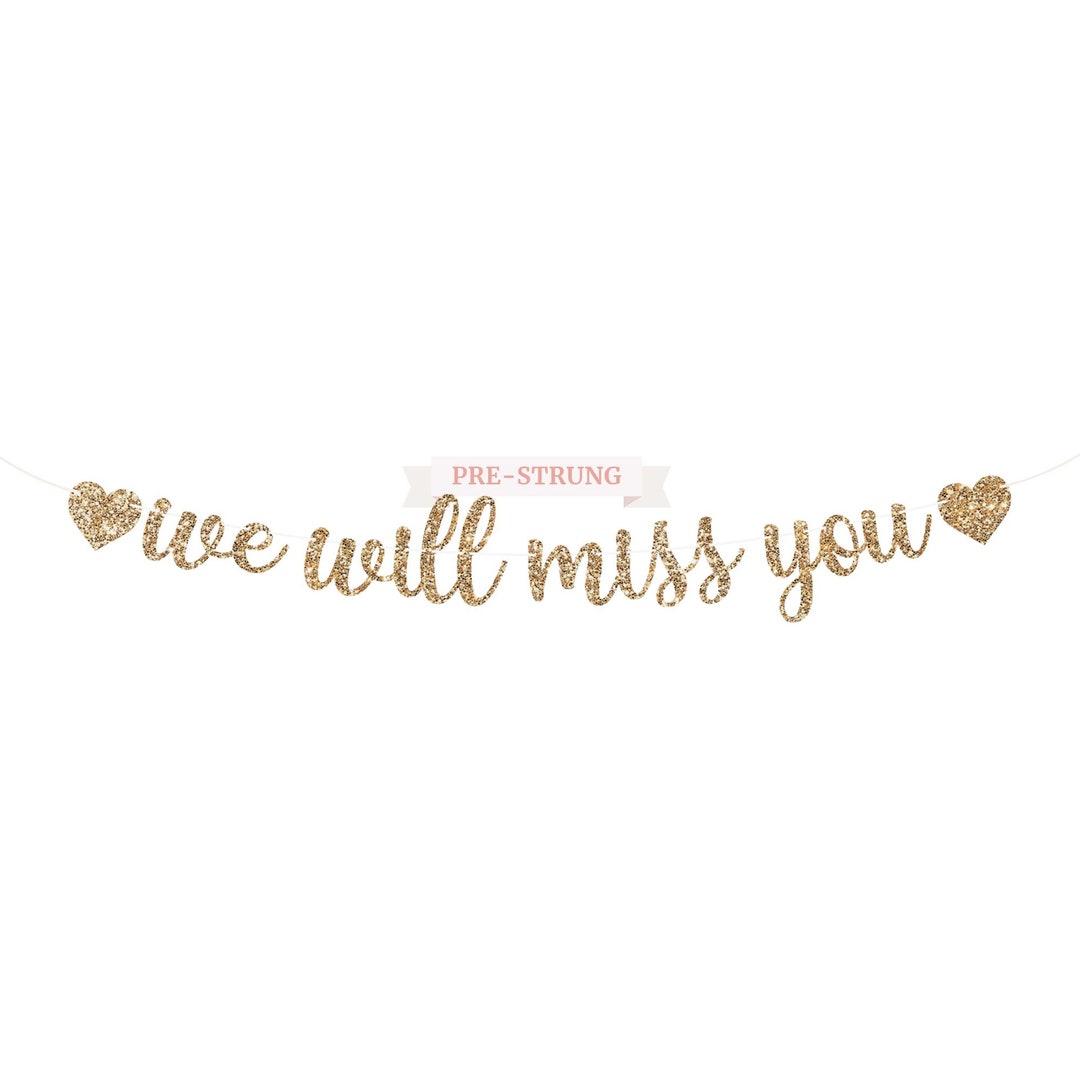 PRE-STRUNG
we will miss you